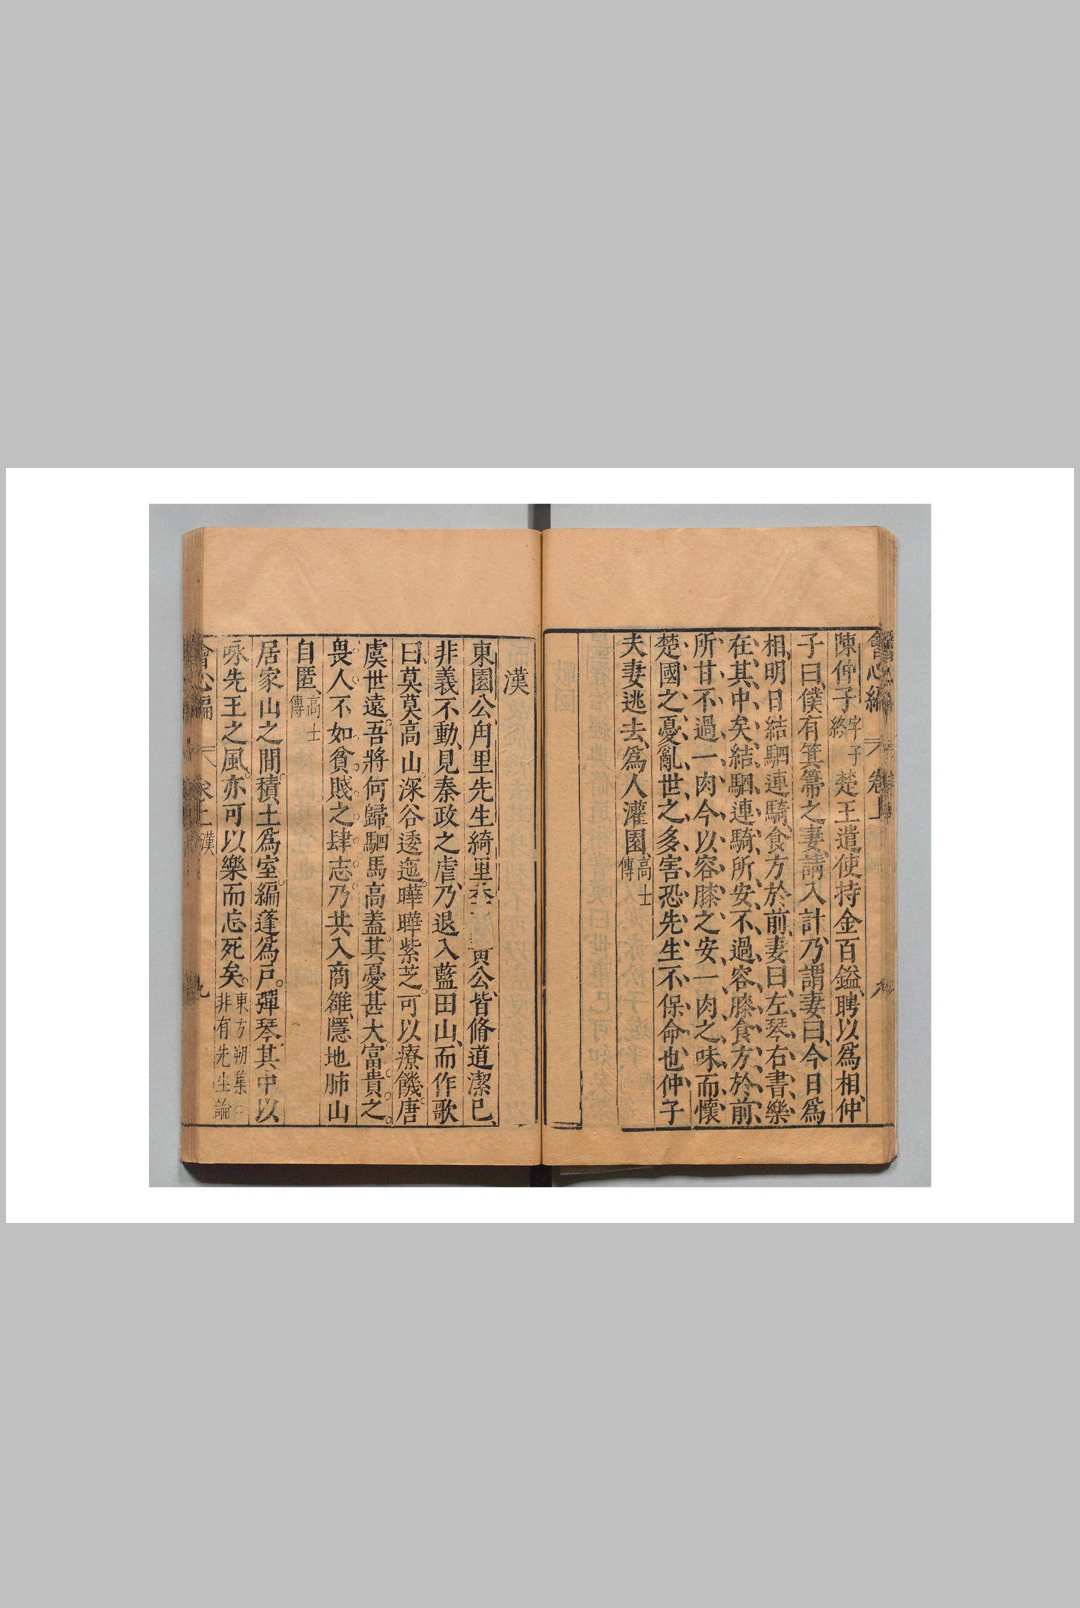 會心編 卷上
陳仲子字子終楚王遣使持金百鎰聘以為相仲
子曰僕有箕箒之妻請入計乃謂妻曰今日為
相明日結駟連騎食方於前妻曰左琴右書樂
在其中矣結駟連騎所安不過容膝食方於前
所甘不過一肉今以容膝之安一肉之味而懷
楚國之憂亂世之多害恐先生不保命也仲子
夫妻逃去為人灌園高士傳
漢
東園公甪里先生綺里季 黃公皆脩道潔已
非義不動見秦政之虐乃退入藍田山而作歌
曰莫莫高山深谷逶迤曄曄紫芝可以療饑唐
虞世遠吾將何歸駟馬高蓋其憂甚大富貴之
畏人不如貧賤之肆志乃共入商雒隱地肺山
自匿高士傳
居家山之間積土為室編蓬為戶彈琴其中以
咏先王之風亦可以樂而忘死矣東方朔集非有先生論
會心編 卷上 漢 九